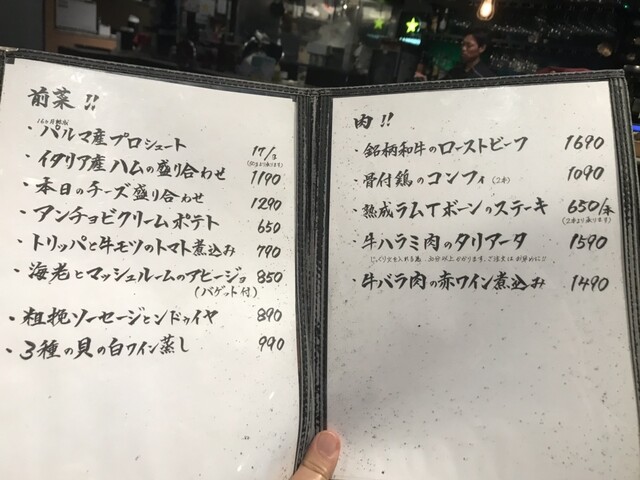 前菜!!
16ヵ月熟成
・パルマ産プロシュート 17/g
(50gより承ります)
・イタリア産ハムの盛り合わせ 1190
・本日のチーズ盛り合わせ 1290
・アンチョビクリームポテト 650
・トリッパと牛モツのトマト煮込み 790
・海老とマッシュルームのアヒージョ 850
(バゲット付)
・粗挽ソーセージとンドゥイヤ 890
・3種の貝の白ワイン蒸し 990
肉!!
・銘柄和牛のローストビーフ 1690
・骨付鶏のコンフィ(2本) 1090
・熟成ラムTボーンのステーキ 650/本
(2本より承ります)
・牛ハラミ肉のタリアータ 1590
じっくり火を入れる為、お時間かかります。ご注文はお早めに!!
・牛バラ肉の赤ワイン煮込み 1490